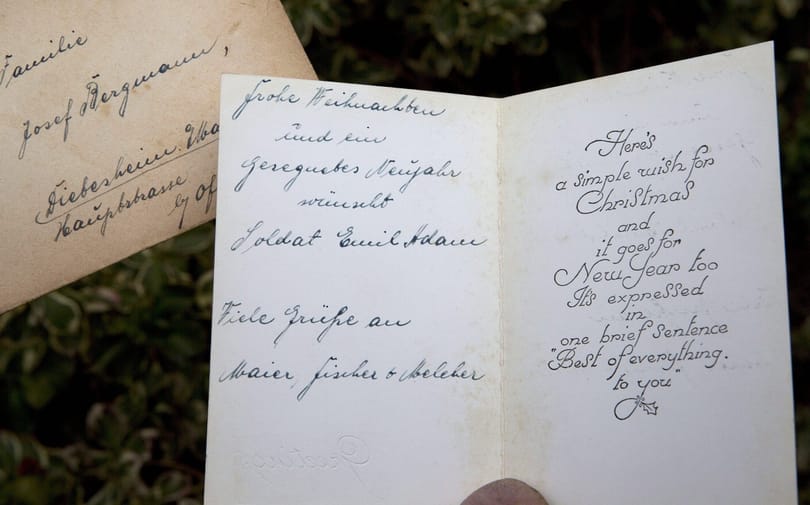 Familie
Josef Bergmann,
Diebesheim. Elba
Hauptstrasse
by Of
Frohe Weihnachten
und ein
Gesegnebes Neujahr
wünscht
Soldat Emil Adam
Viele Grüße an
Maier, Fischer & Melcher
Greetings
Here's
a simple wish for
Christmas
and
it goes for
New Year too
It's expressed
in
one brief sentence
"Best of everything.
to you"